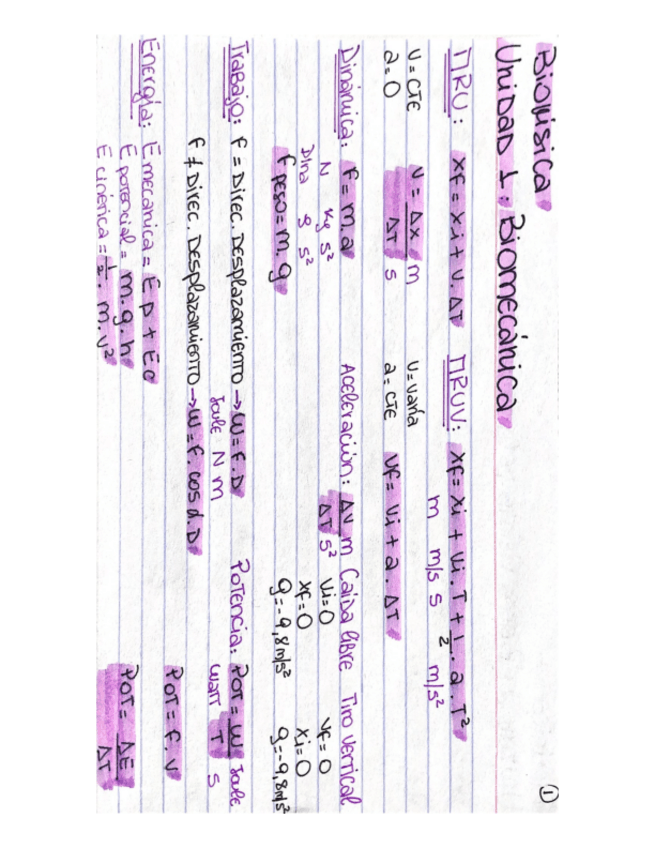 ①
Biofísica
Unidad 1: Biomecánica
MRU: xf = xi + v. ΔT
v = CTE
a = 0
v = Δx m
ΔT s
MRUV: xf = xi + vi . T + 1/2 . a . T²
m m/s s m/s²
v = varía
a = CTE
vf = vi + a . ΔT
Dinámica: F = m.a
N Kg s²
Dina g s²
F peso = m. g
Aceleración: Δv m
ΔT s²
Caída libre
vi = 0
xf = 0
g = -9,8 m/s²
Tiro vertical
vf = 0
xi = 0
g = -9,8 m/s²
Trabajo: F = Direc. Desplazamiento → W = F. D
Joule N m
F ≠ Direc. Desplazamiento → W = F. cos α. D
Potencia: POT = W Joule
Watt T s
POT = F. v
POT = ΔE
ΔT
Energía: E mecánica = Ep + Ec
E potencial = m. g. h
E cinética = 1/2 . m. v²